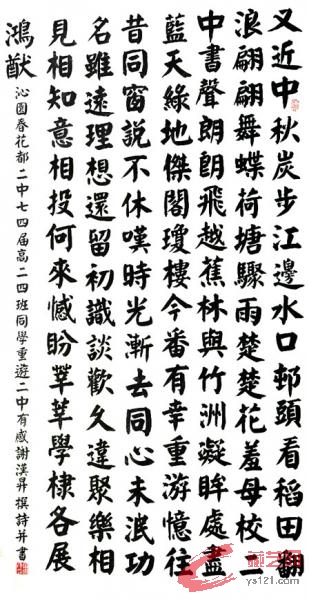 又近中秋炭步江邊水口邨頭看稻田翻
浪翩翩舞蝶荷塘驟雨楚楚花羞母校二
中書聲朗朗飛越蕉林與竹洲凝眸處盡
藍天綠地傑閣瓊樓今番有幸重游憶往
昔同窗說不休嘆時光漸去同心未泯功
名雖遠理想還留初識談歡久違聚樂相
見相知意相投何來憾盼莘莘學棣各展
鴻猷
沁園春花都二中七四届高二四班同學重遊二中有感謝漢昇撰詩并書
ys121.com